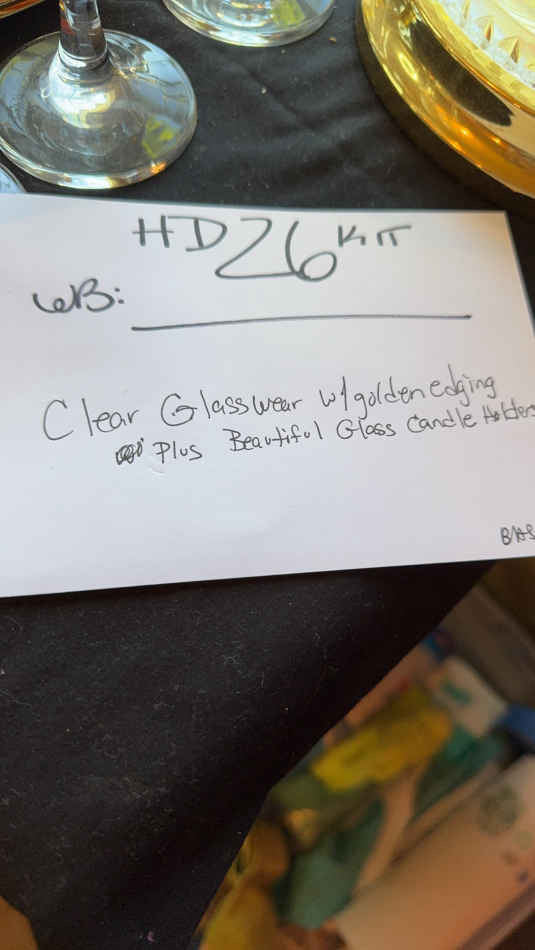 HD26 KIT
WB:
Clear Glasswear w/golden edging
Plus Beautiful Glass Candle Holders